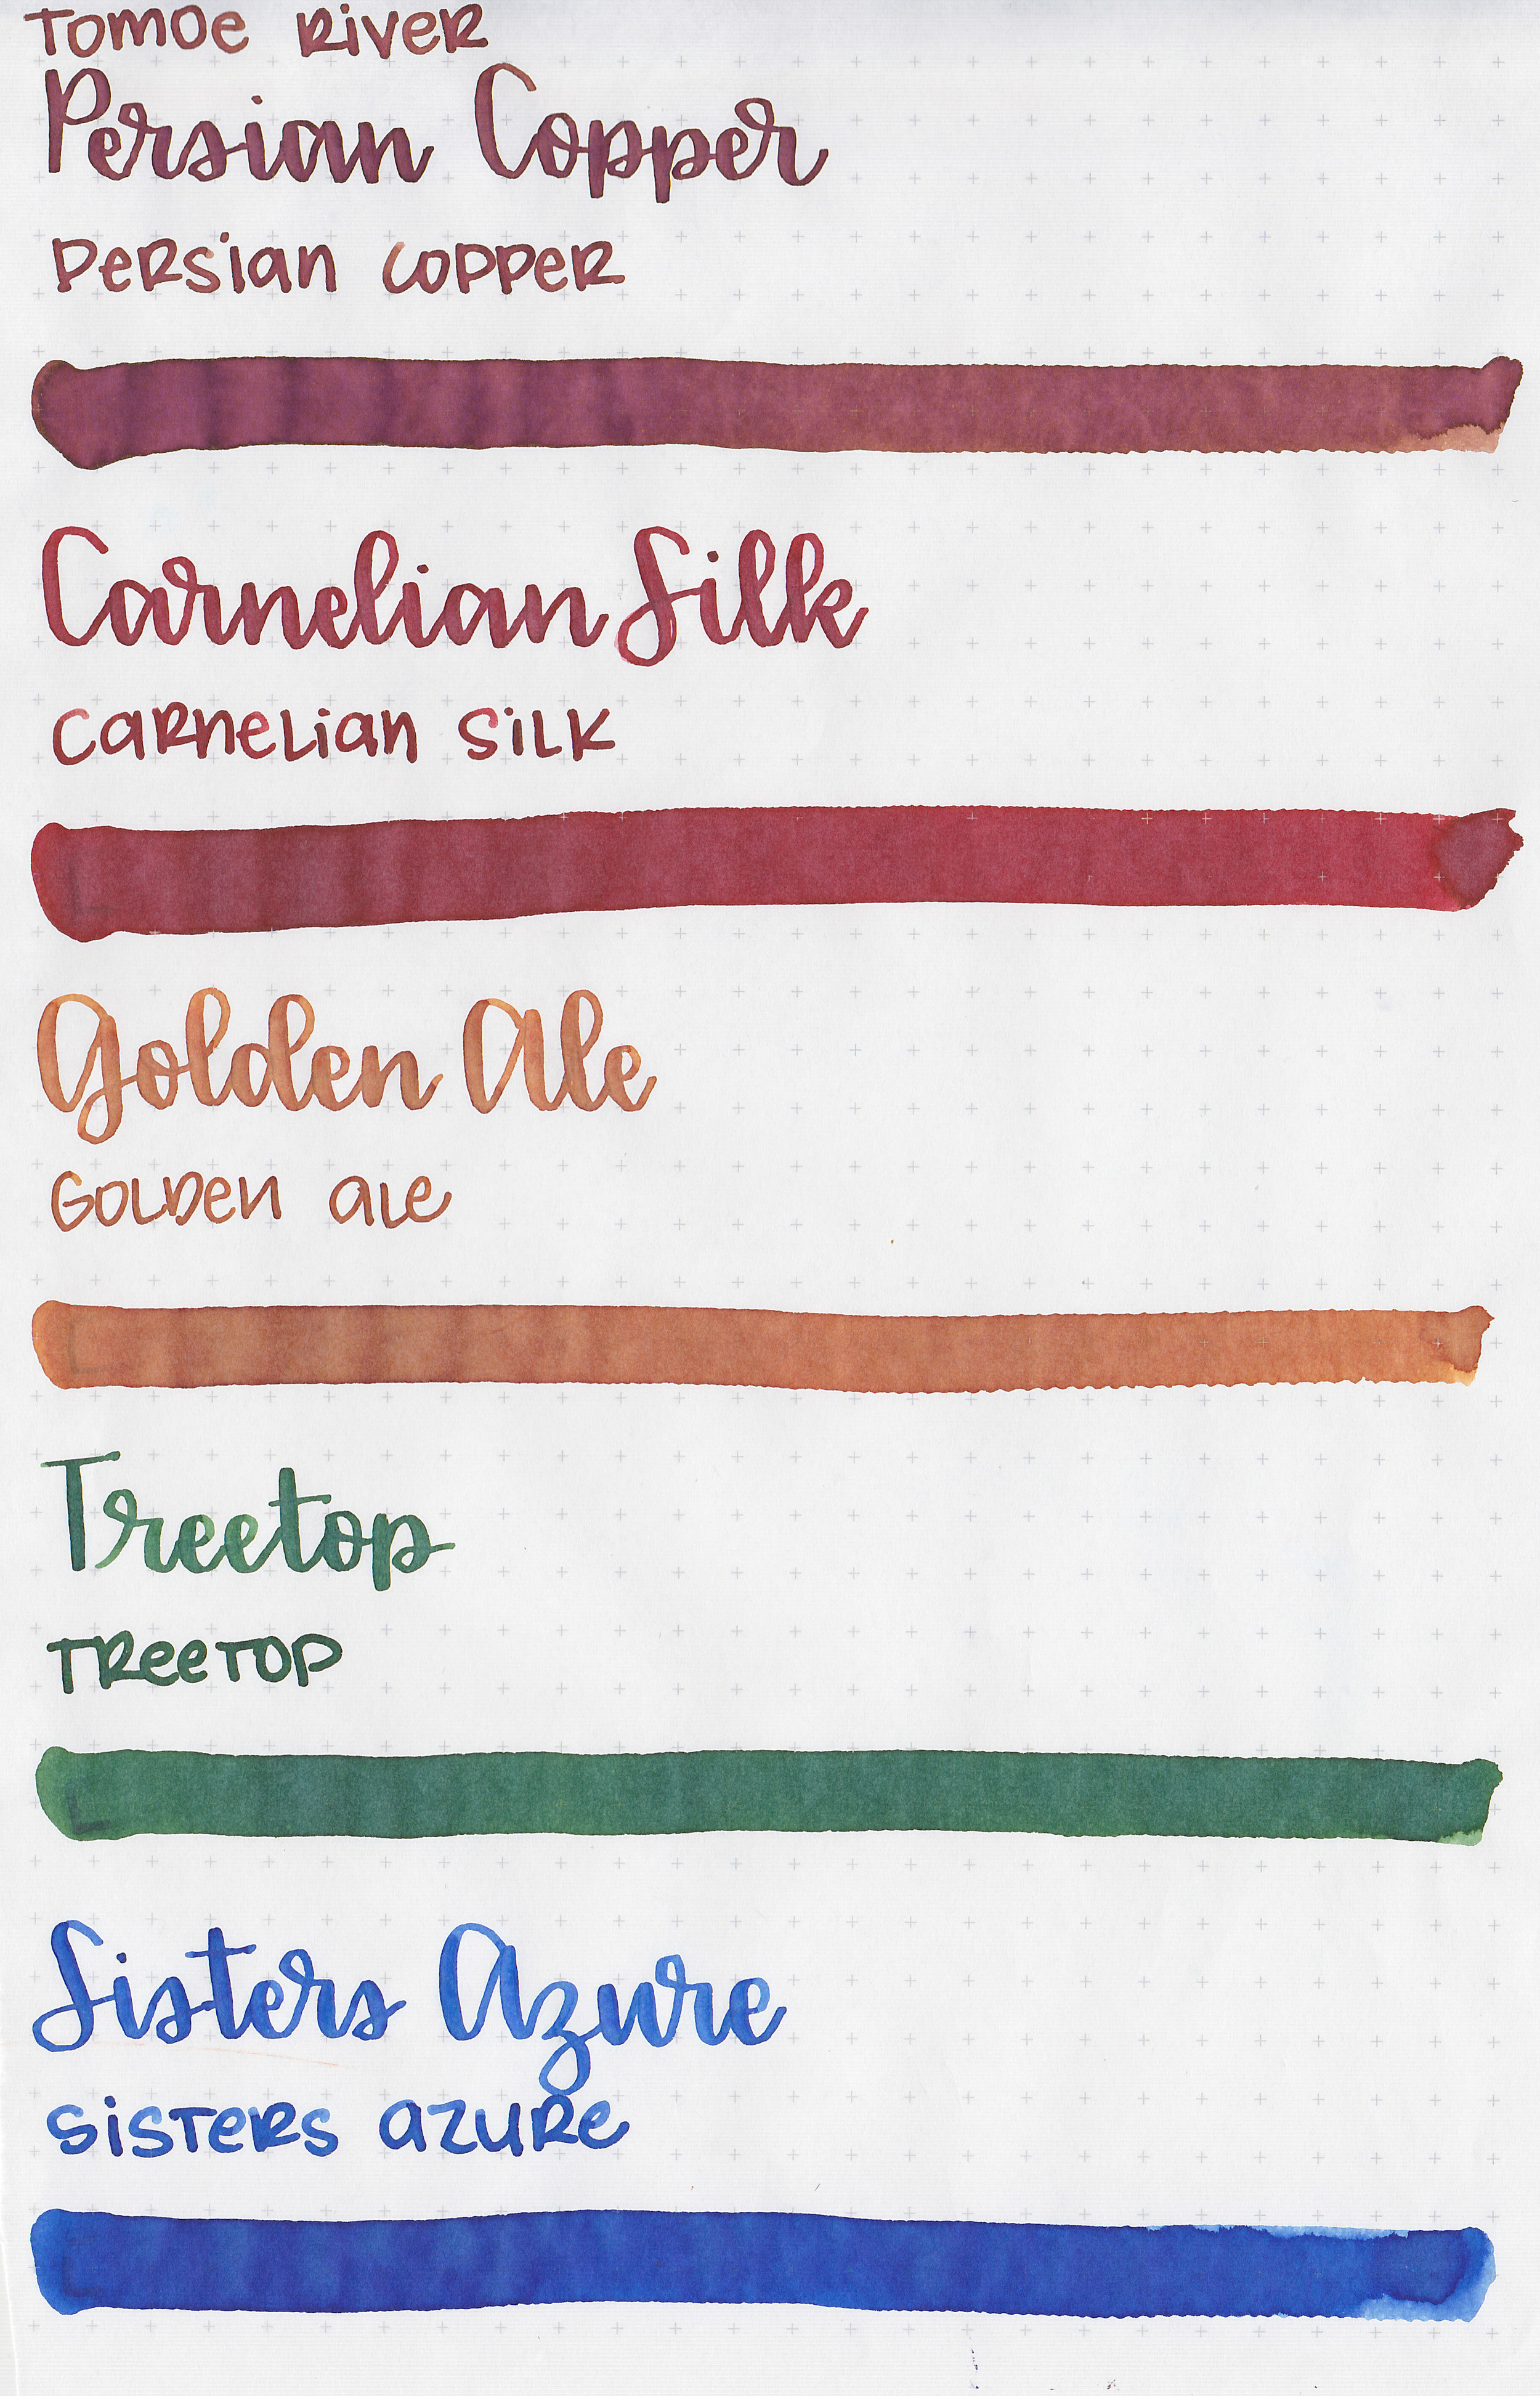 Tomoe River
Persian Copper
Persian Copper
Carnelian Silk
Carnelian Silk
Golden Ale
Golden Ale
Treetop
Treetop
Sisters Azure
Sisters Azure